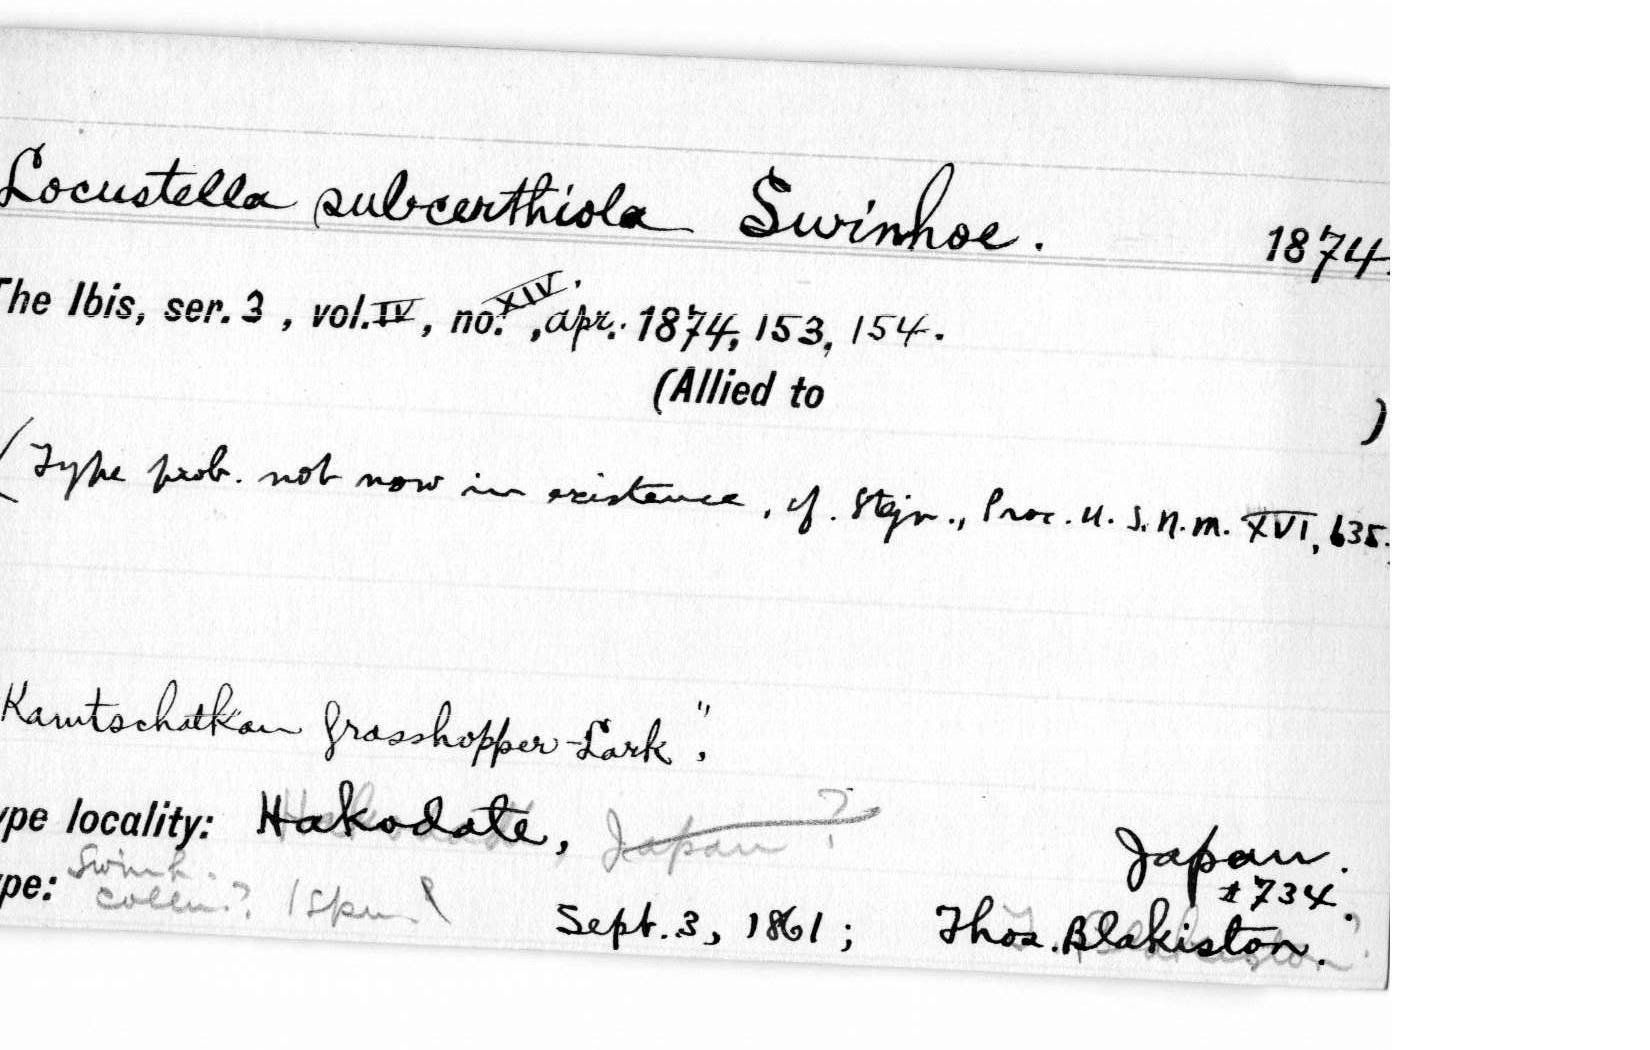 Locustella subcerthiola Swinhoe. 1874.
The Ibis, ser. 3, vol. IV, no. XIV., apr. 1874, 153, 154.
(Allied to )
(Type prob. not now in existence, cf. Stejn., Proc. U.S.N.M. XVI, 635.
Kamtschatkan Grasshopper-Lark",
ype locality: Hakodate, Japan ? Japan.
Swinh. #734.
ype: colln.? 1 spn. Sept. 3, 1861; Thos. Blakiston.